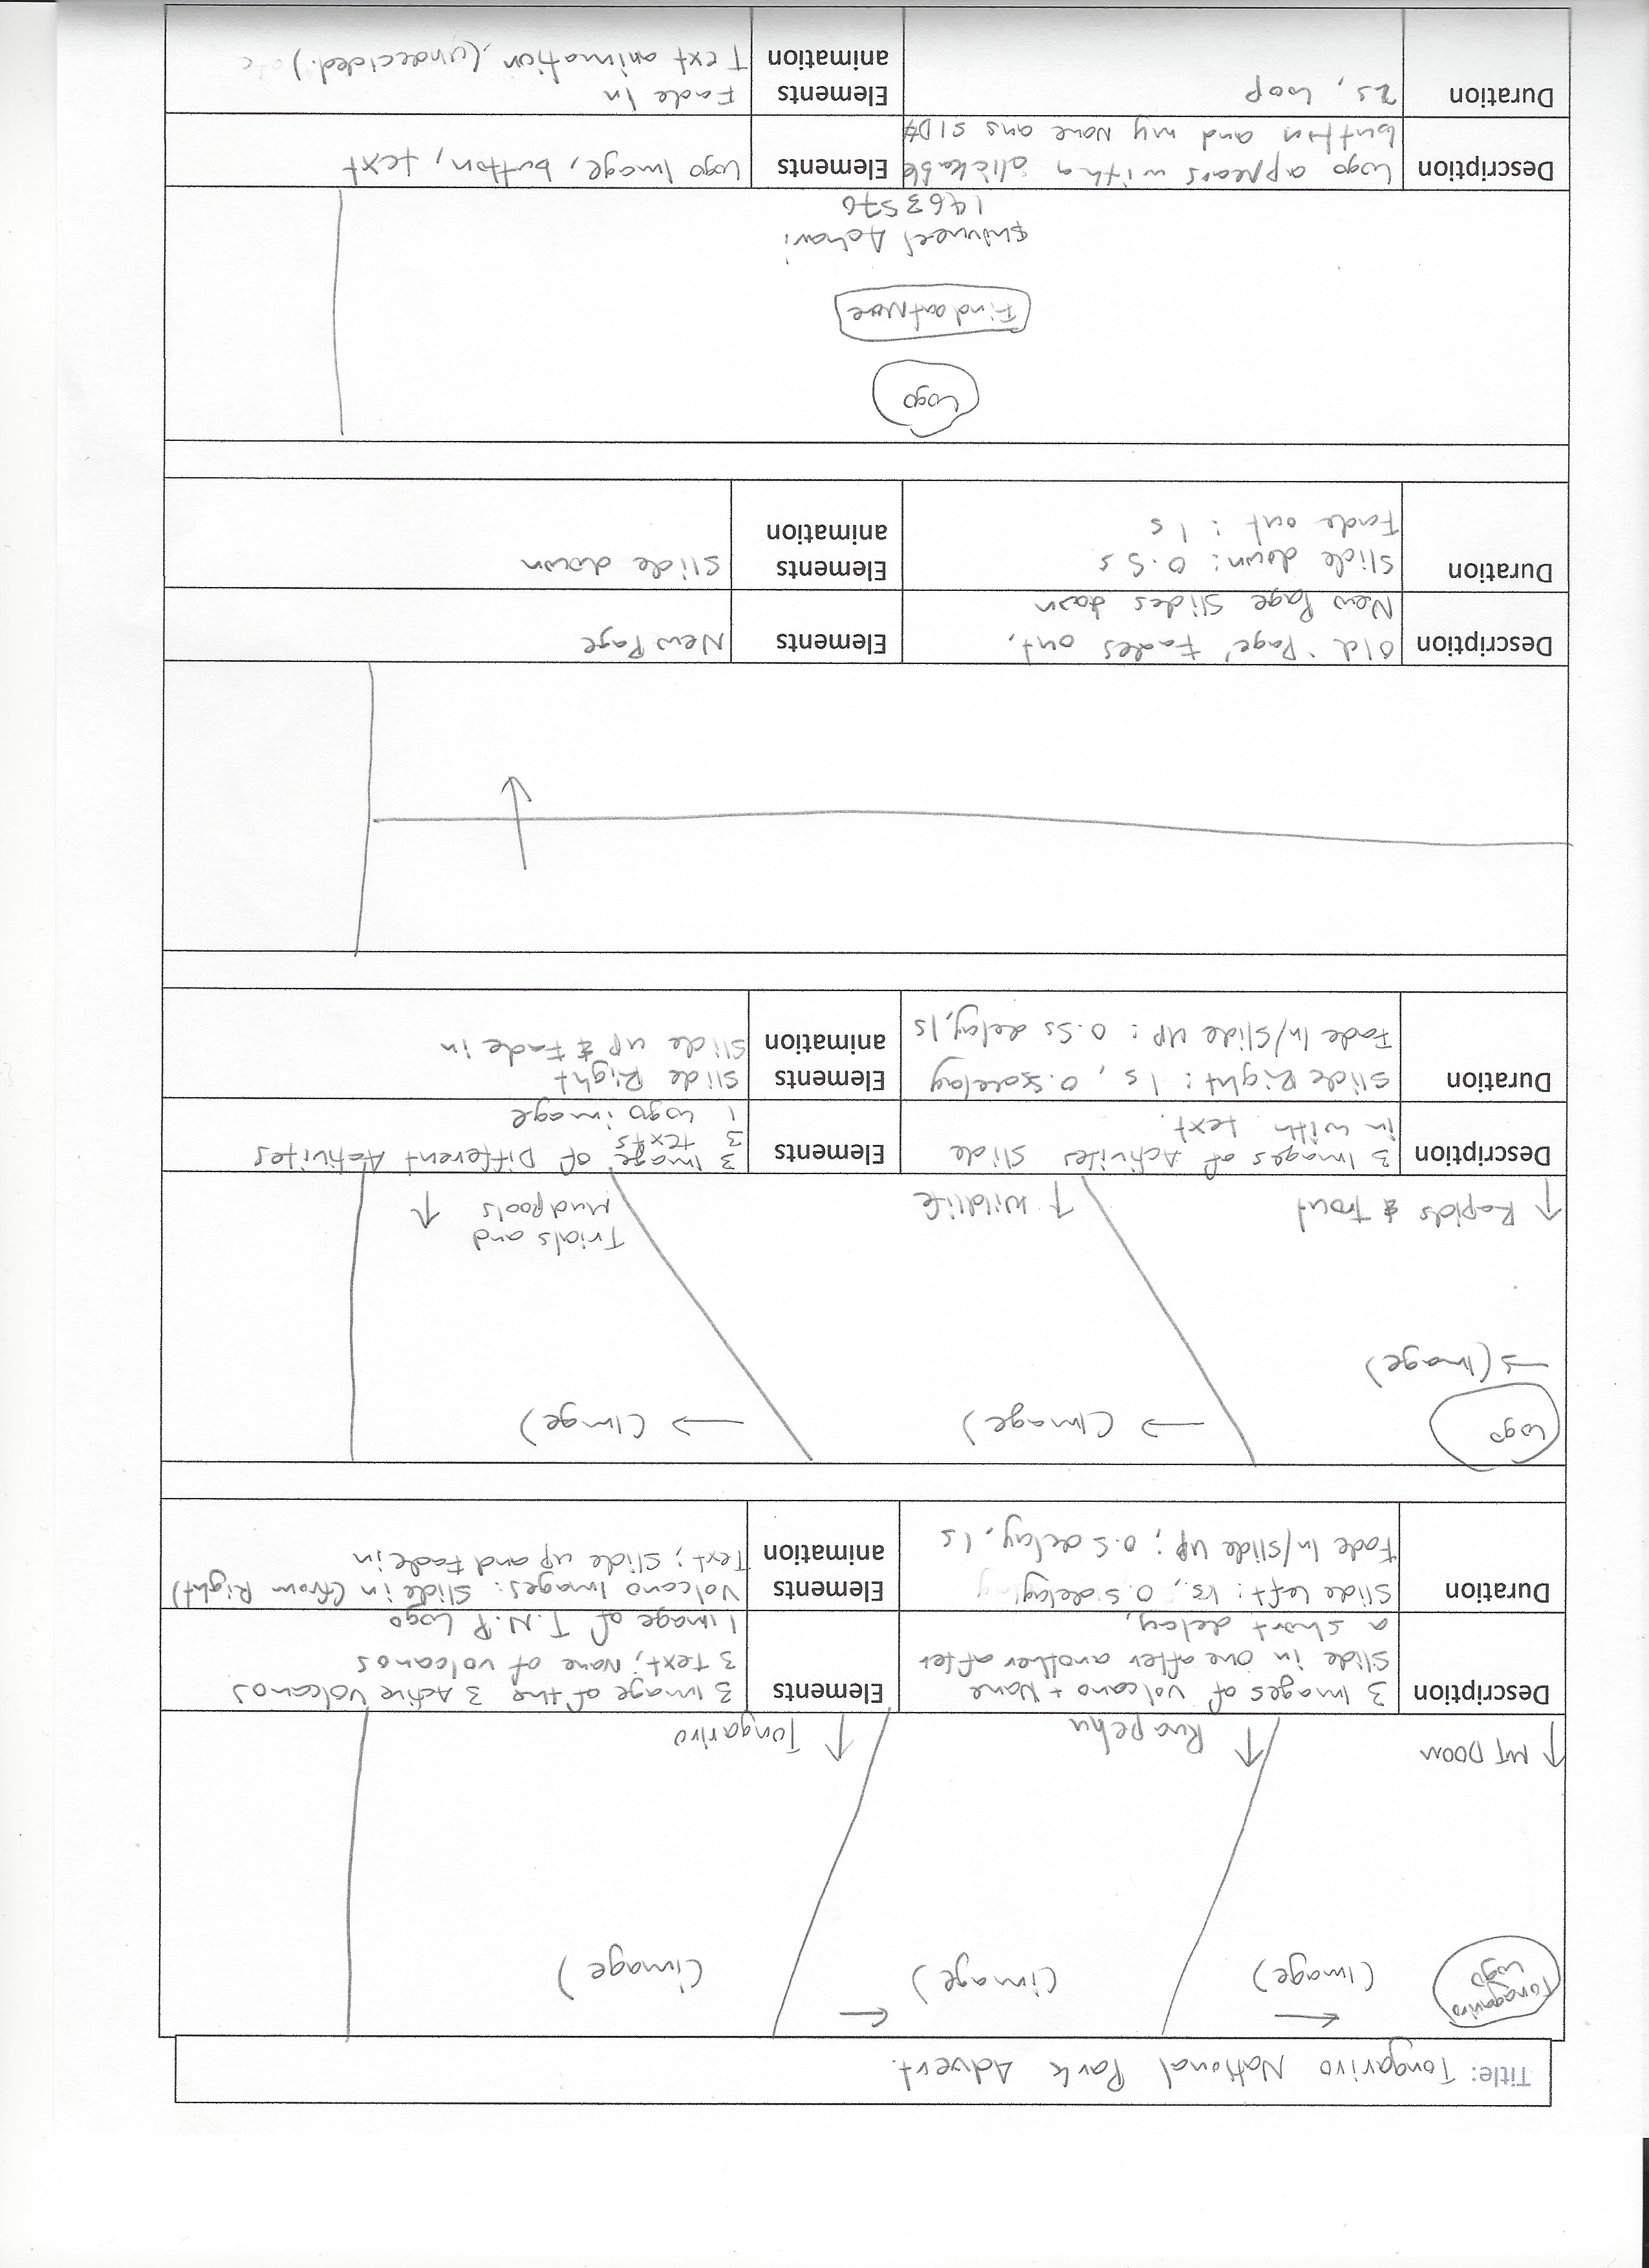 Title: Tongariro National Park Advert.
Tongagriro
Logo
(Image)
(image)
(image)
MT DOOM
Ruapehu
Tongariro
Description
3 Images of volcano + Name
slide in one after another after
a short delay,
Elements
3 image of the 3 Active Volcanos
3 text; Name of volcanos
1 image of T.N.P Logo
Duration
Slide left: 1s, 0.5 delay
Fade In/Slide Up; 0.5 delay, 1s
Elements
animation
Volcano Images: Slide in (from Right)
Text; slide up and fade in
Logo
(Image)
(Image)
(Image)
Rapids & Trout
Wildlife
Trials and
Mudpools
Description
3 Images of Activites slide
in with text.
Elements
3 image of Different Activites
3 texts
1 Logo image
Duration
Slide Right: 1s, 0.5s delay
Fade In/Slide UP: 0.5s delay, 1s
Elements
animation
Slide Right
Slide up & Fade in
Description
Old 'Page' Fades out,
New Page slides down
Elements
New Page
Duration
Slide down: 0.5s
Fade out: 1s
Elements
animation
Slide down
Logo
Find out More
Shivneel Achari
Description
Logo appears with a clickable
button and my Name ans SID#
Elements
Logo Image, button, text
Duration
2s, Loop
Elements
animation
Fade In
Text animation, (undecided.)